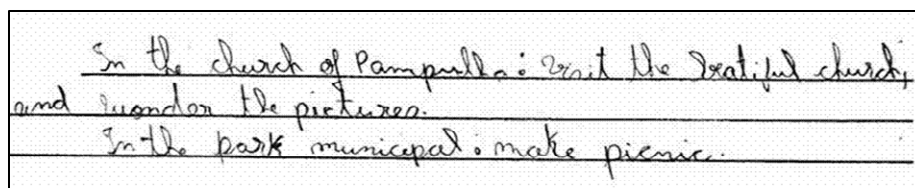 In the church of Pampulha: visit the beatiful church,
and wonder the pictures.
In the park municipal: make picnic.